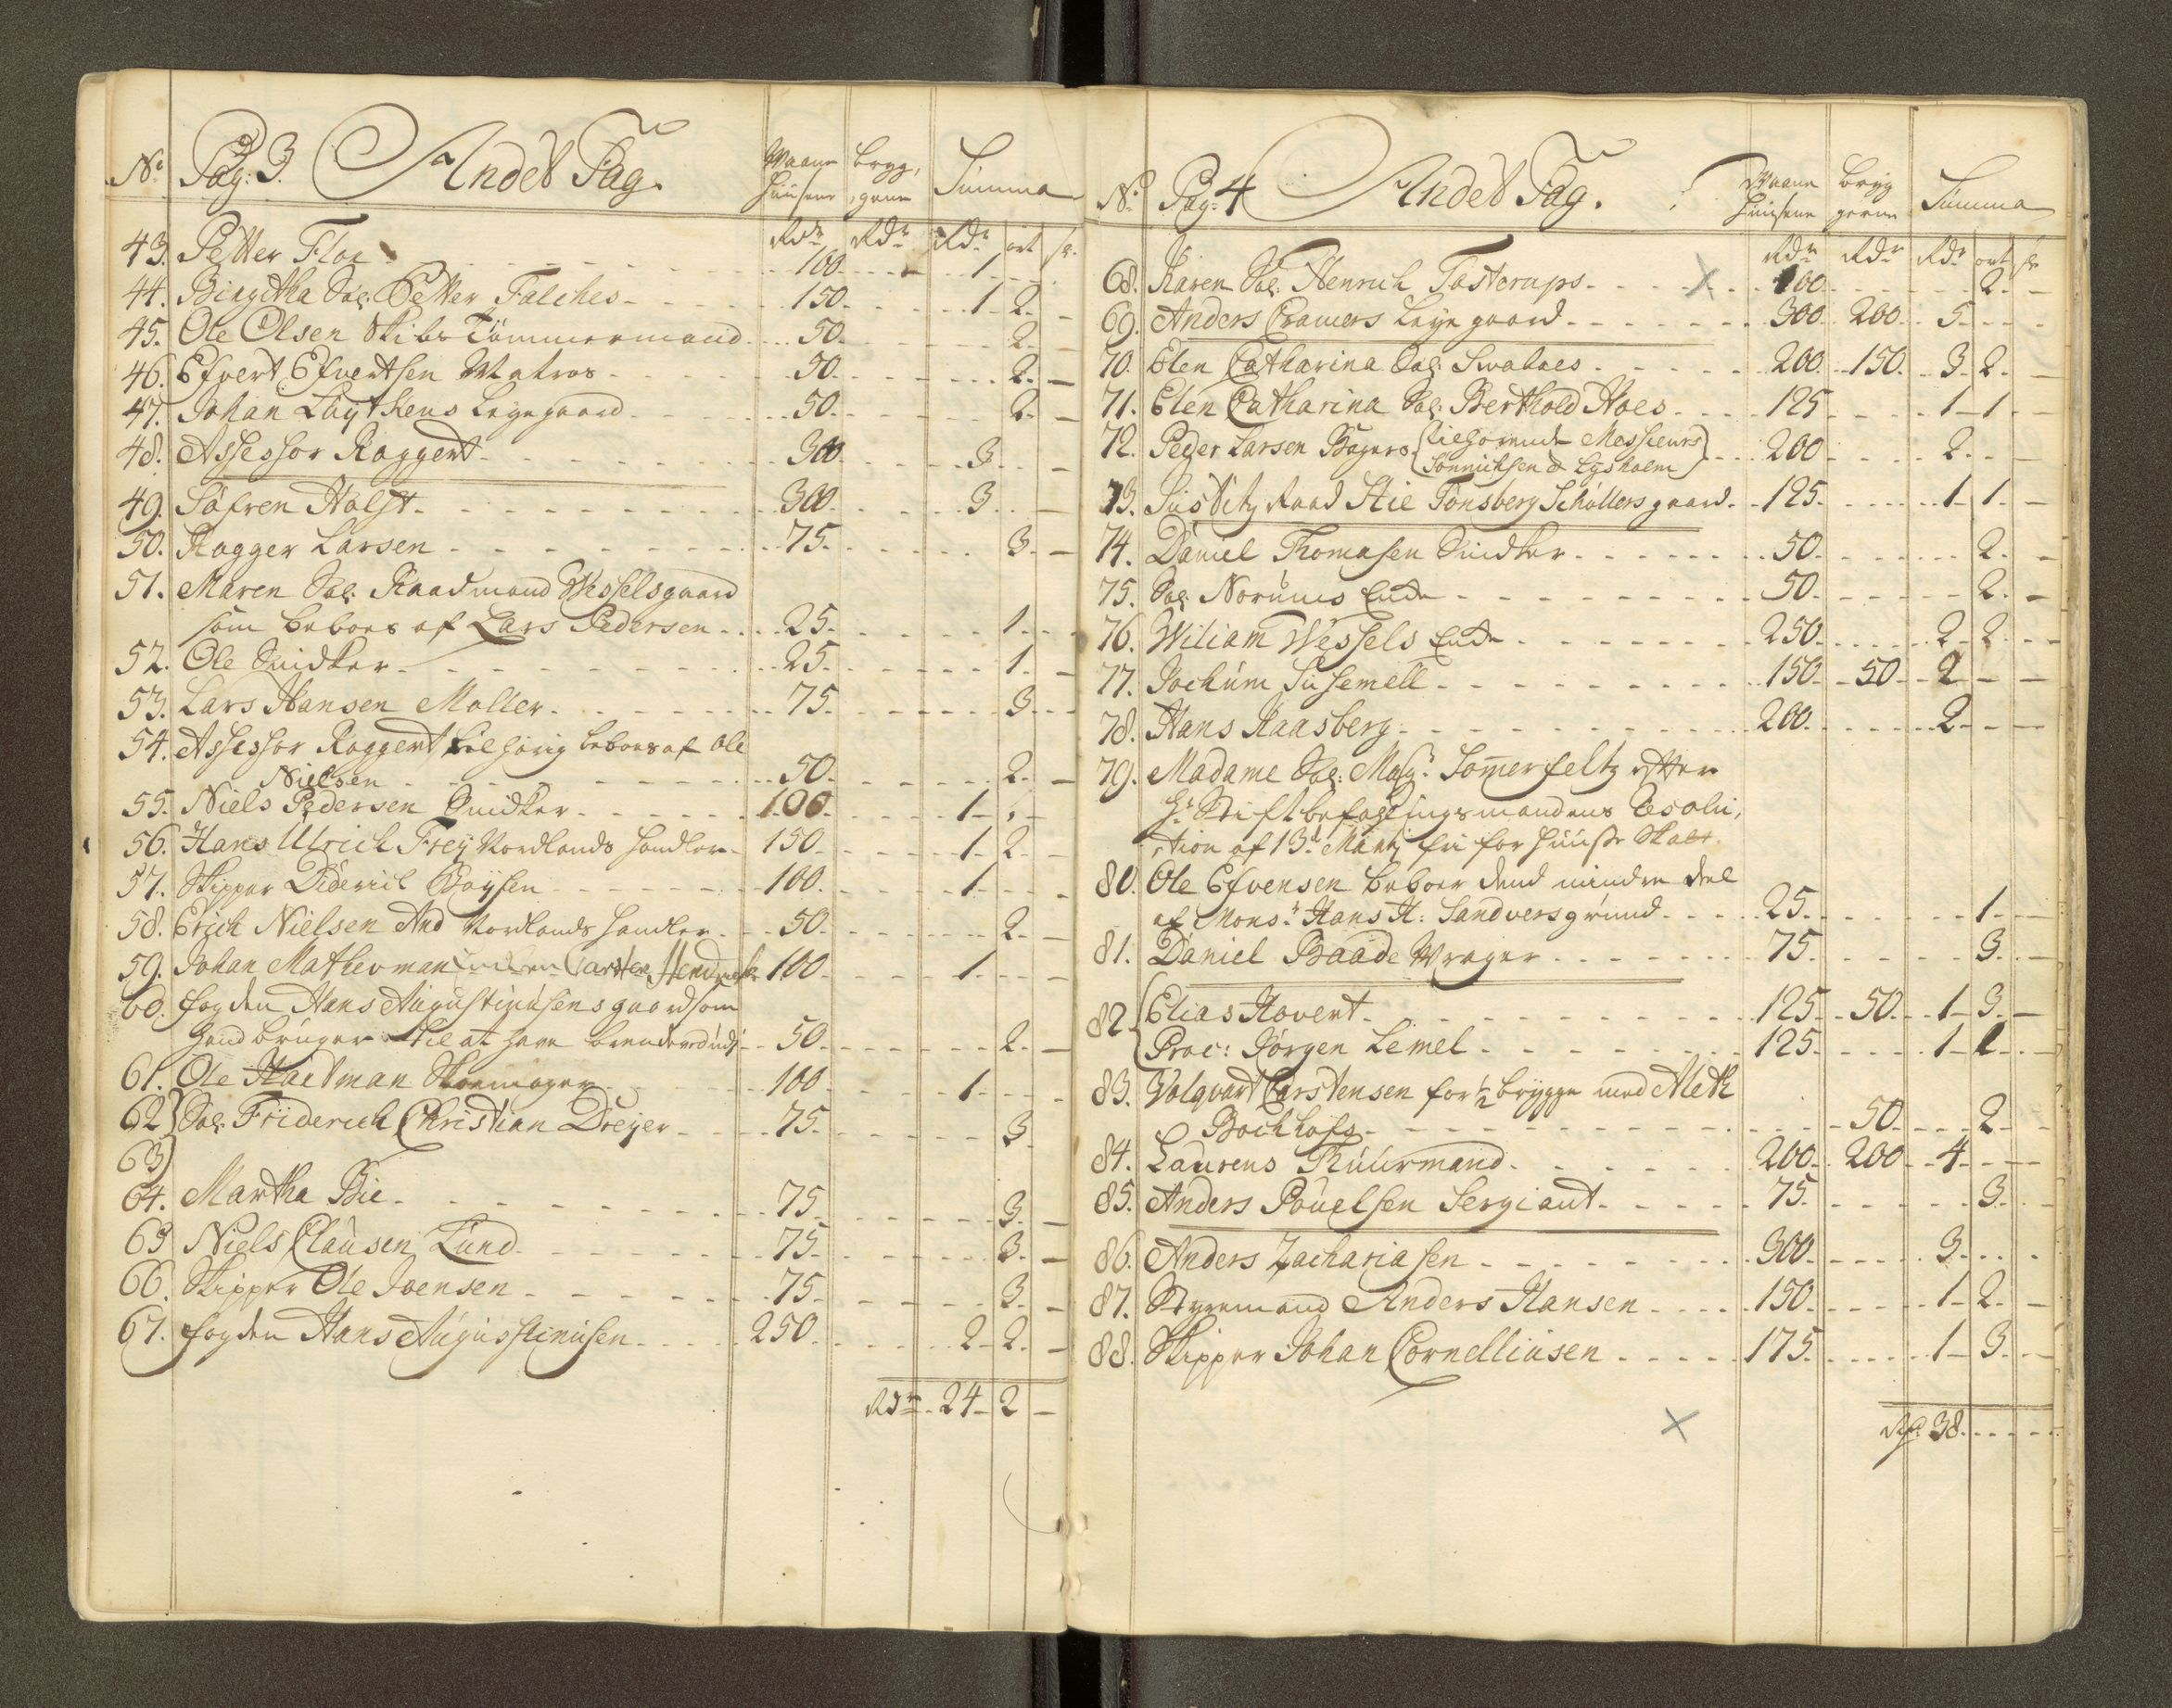 No Pag: 3. Andet Fag. Waane Huusene Bryg, gene Summa
Rdr Rdr Rdr ort s.
43. Petter Floe 100. 1.
44. Birgitha Sal: Petter Falches 150. 1. 2.
45. Ole Olsen Skibs Tömmermand 50. 2.
46. Efvert Efvertsen Matros 50. 2.
47. Johan Lüytkens Leyegaard 50. 2.
48. Assessor Roggert 300. 3.
49. Söfren Holst 300. 3.
50. Rogger Larsen 75. 3.
51. Maren Sal: Raadmand Wesselsgaard
som beboes af Lars Pedersen 25. 1.
52. Ole Snidker 25. 1.
53. Lars Hansen Moller 75. 3.
54. Assessor Roggert tilhörig beboes af Ole
Nielsen 50. 2.
55. Niels Pedersen Snidker 100. 1.
56. Hans Ulrich Frey Nordlands handler 150. 1. 2.
57. Skipper Diderich Boysen 100. 1.
58. Erich Nielsen And Nordlands handler 50. 2.
59. Johan Matheoman Carsten Hendrich 100. 1.
60. fogden Hans Augustinusens gaard som
hand bruger til at have brendeved udj 50. 2.
61. Ole Hartman Skoemager 100. 1.
62 Sal: Friderich Christian Dreyer 75. 3.
63
64. Martha Bie 75. 3.
65 Niels Clausen Lund 75. 3.
66. Skipper Ole Joensen 75. 3.
67. fogden Hans Augustinusen 250. 2. 2.
Rdr 24. 2
No Pag: 4 Andet Fag. Waane Huusene Bryg gerne Summa
Rdr Rdr Rdr ort s
68. Karen Sal: Henrich Tasterups 100. 2.
69. Anders Cramers Leye gaard 300. 200. 5.
70. Elen Catharina Sal: Swabaes 200. 150. 3. 2.
71. Elen Catharina Sal: Berthold Hoes 125 1. 1.
72. Peder Larsen Bagers (tilhörende Messieurs
Sönnichsen & Lysholm) 200 2.
73. Justitz Raad Stie Tönsberg Schöllers gaard 125. 1. 1.
74. Daniel Thomasen Snidker 50. 2.
75. Sal: Norums Encke 50. 2.
76. Wiliam Wessels Encke 250. 2. 2.
77. Jochum Susemell 150. 50. 2
78. Hans Kaasberg 200. 2.
79. Madame Sal: Magr Somerfeltz efter
Hr Stiftbefahlingsmandens Resolu,
tion af 13d Martj fri for Huuse Skatt.
80. Ole Efvensen beboer dend mindre deel
af Monsr Hans H: Sandvers grund 25. 1.
81. Daniel Baade Wrager 75. 3.
82. Elias Hovert 125. 50. 1. 3.
Proc: Jörgen Lemel 125. 1. 1.
83. Volqvart Carstensen for 1/2 brygge med Aleth
Bochhofs 50. 2.
84. Laurens Thuurmand 200. 200. 4.
85. Anders Pouelsen Sergiant 75. 3.
86. Anders Zachariasen 300. 3.
87. Styremand Anders Hansen 150. 1. 2.
88. Skipper Johan Cornelliusen 175. 1. 3.
Rdr 38.